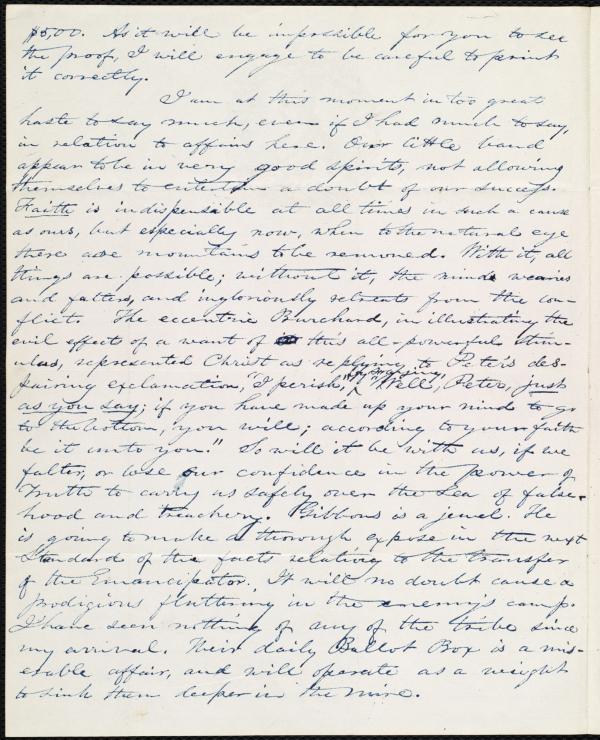 $5,00. As it will be impossible for you to see
the proof, I will engage to be careful to print
it correctly.
I am at this moment in too great
haste to say much, even if I had much to say,
in relation to affairs here. Our little band
appear to be in very good spirits, not allowing
themselves to entertain a doubt of our success.
Faith is indispensible at all times in such a cause
as ours, but especially now, when to the natural eye
there are mountains to be removed. With it, all
things are possible; without it, the mind wearies
and falters, and ingloriously retreats from the con-
flict. The eccentric Burchard, in illustrating the
evil effects of a want of this all-powerful stim-
ulus, represented Christ as replying to Peter's des-
pairing exclamation, "I perish," "Well, Peter, just
as you say; if you have made up your mind to go
to the bottom, you will; according to your faith
be it unto you." So will it be with us, if we
falter, or lose our confidence in the power of
Truth to carry us safely over the sea of false-
hood and treachery. Gibbons is a jewel. He
is going to make a thorough expose in the next
Standard of the facts relating to the transfer
of the Emancipator. It will no doubt cause a
prodigious fluttering in the enemy's camp.
I have seen nothing of any of the tribe since
my arrival. Their daily Ballot Box is a mis-
erable affair, and will operate as a weight
to sink them deeper in the mire.